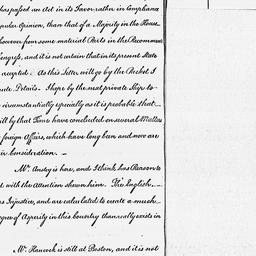 has passed an Act in its Favor rather in Compliance
opular Opinion, than that of a Majority in the House
however from some material Parts in the Recommen
Congress, and it is not certain that in its present State
accepted. As this Letter will go by the Packet I
Details. I hope by the most private Ships to
circumstantially especially as it is probable that
will by that Time have concluded on several Matters
foreign Affairs, which have long been and now are
ir Consideration. —
Mr. Anstey is here, and I think has Reason to
d with the Attention shewn him. The English
Injustice, and are calculated to create a much
egree of Asperity in this Country than really exists in
Mr. Hancock is still at Boston, and it is not